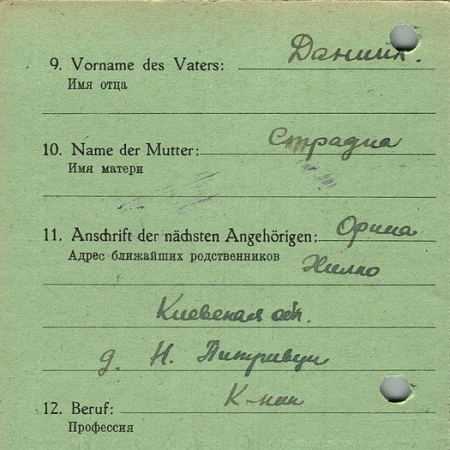 9. Vorname des Vaters: Даниил.
Имя отца
10. Name der Mutter: Страдна
Имя матери
11. Anschrift der nächsten Angehörigen: Орина
Адрес ближайших родственников Хилко
Киевская обл.
д. Н.
12. Beruf:
Профессия